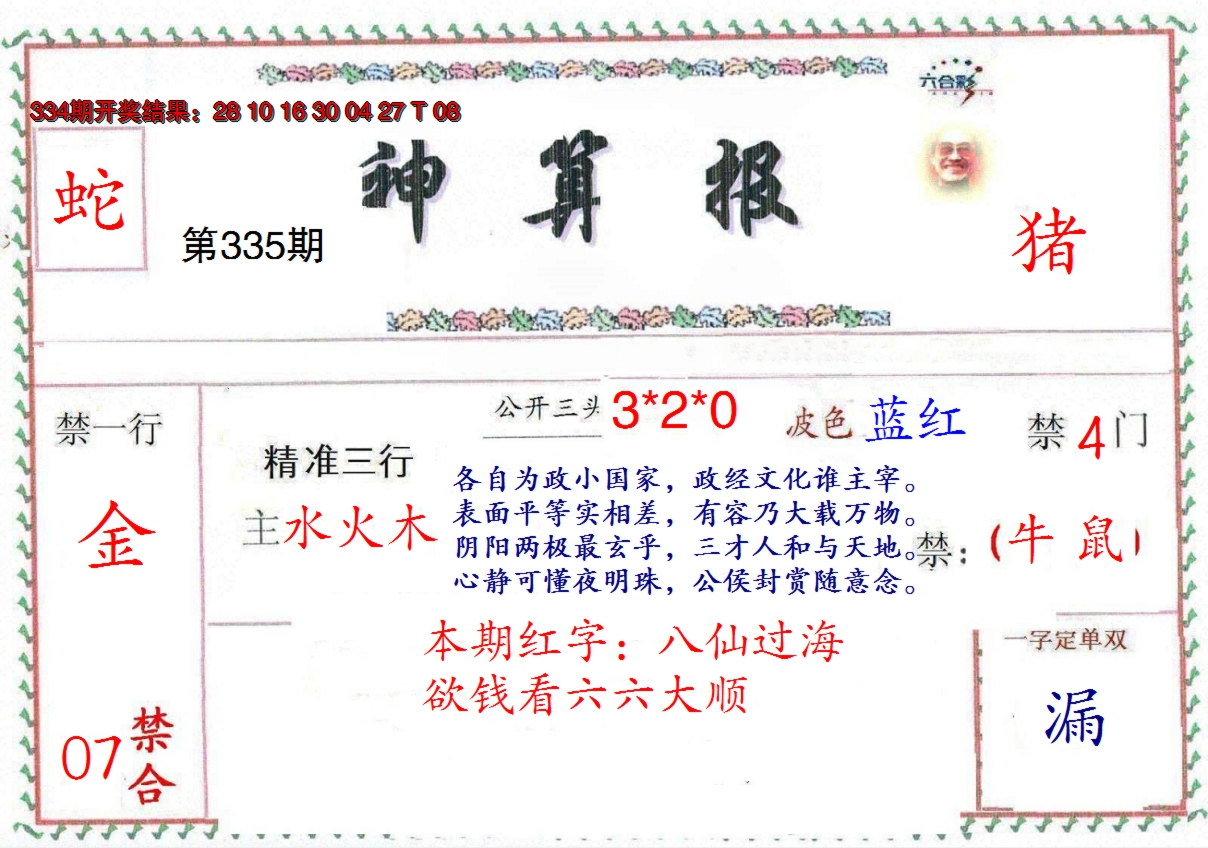 六合彩
334期开奖结果：28 10 16 30 04 27 T 08
神算报
蛇
第335期
猪
公开三头 3*2*0
波色 蓝红
禁4门
禁一行
金
精准三行
主水火木
各自为政小国家，政经文化谁主宰。
表面平等实相差，有容乃大载万物。
阴阳两极最玄乎，三才人和与天地。
心静可懂夜明珠，公侯封赏随意念。
禁：(牛 鼠)
本期红字：八仙过海
欲钱看六六大顺
一字定单双
漏
07禁合